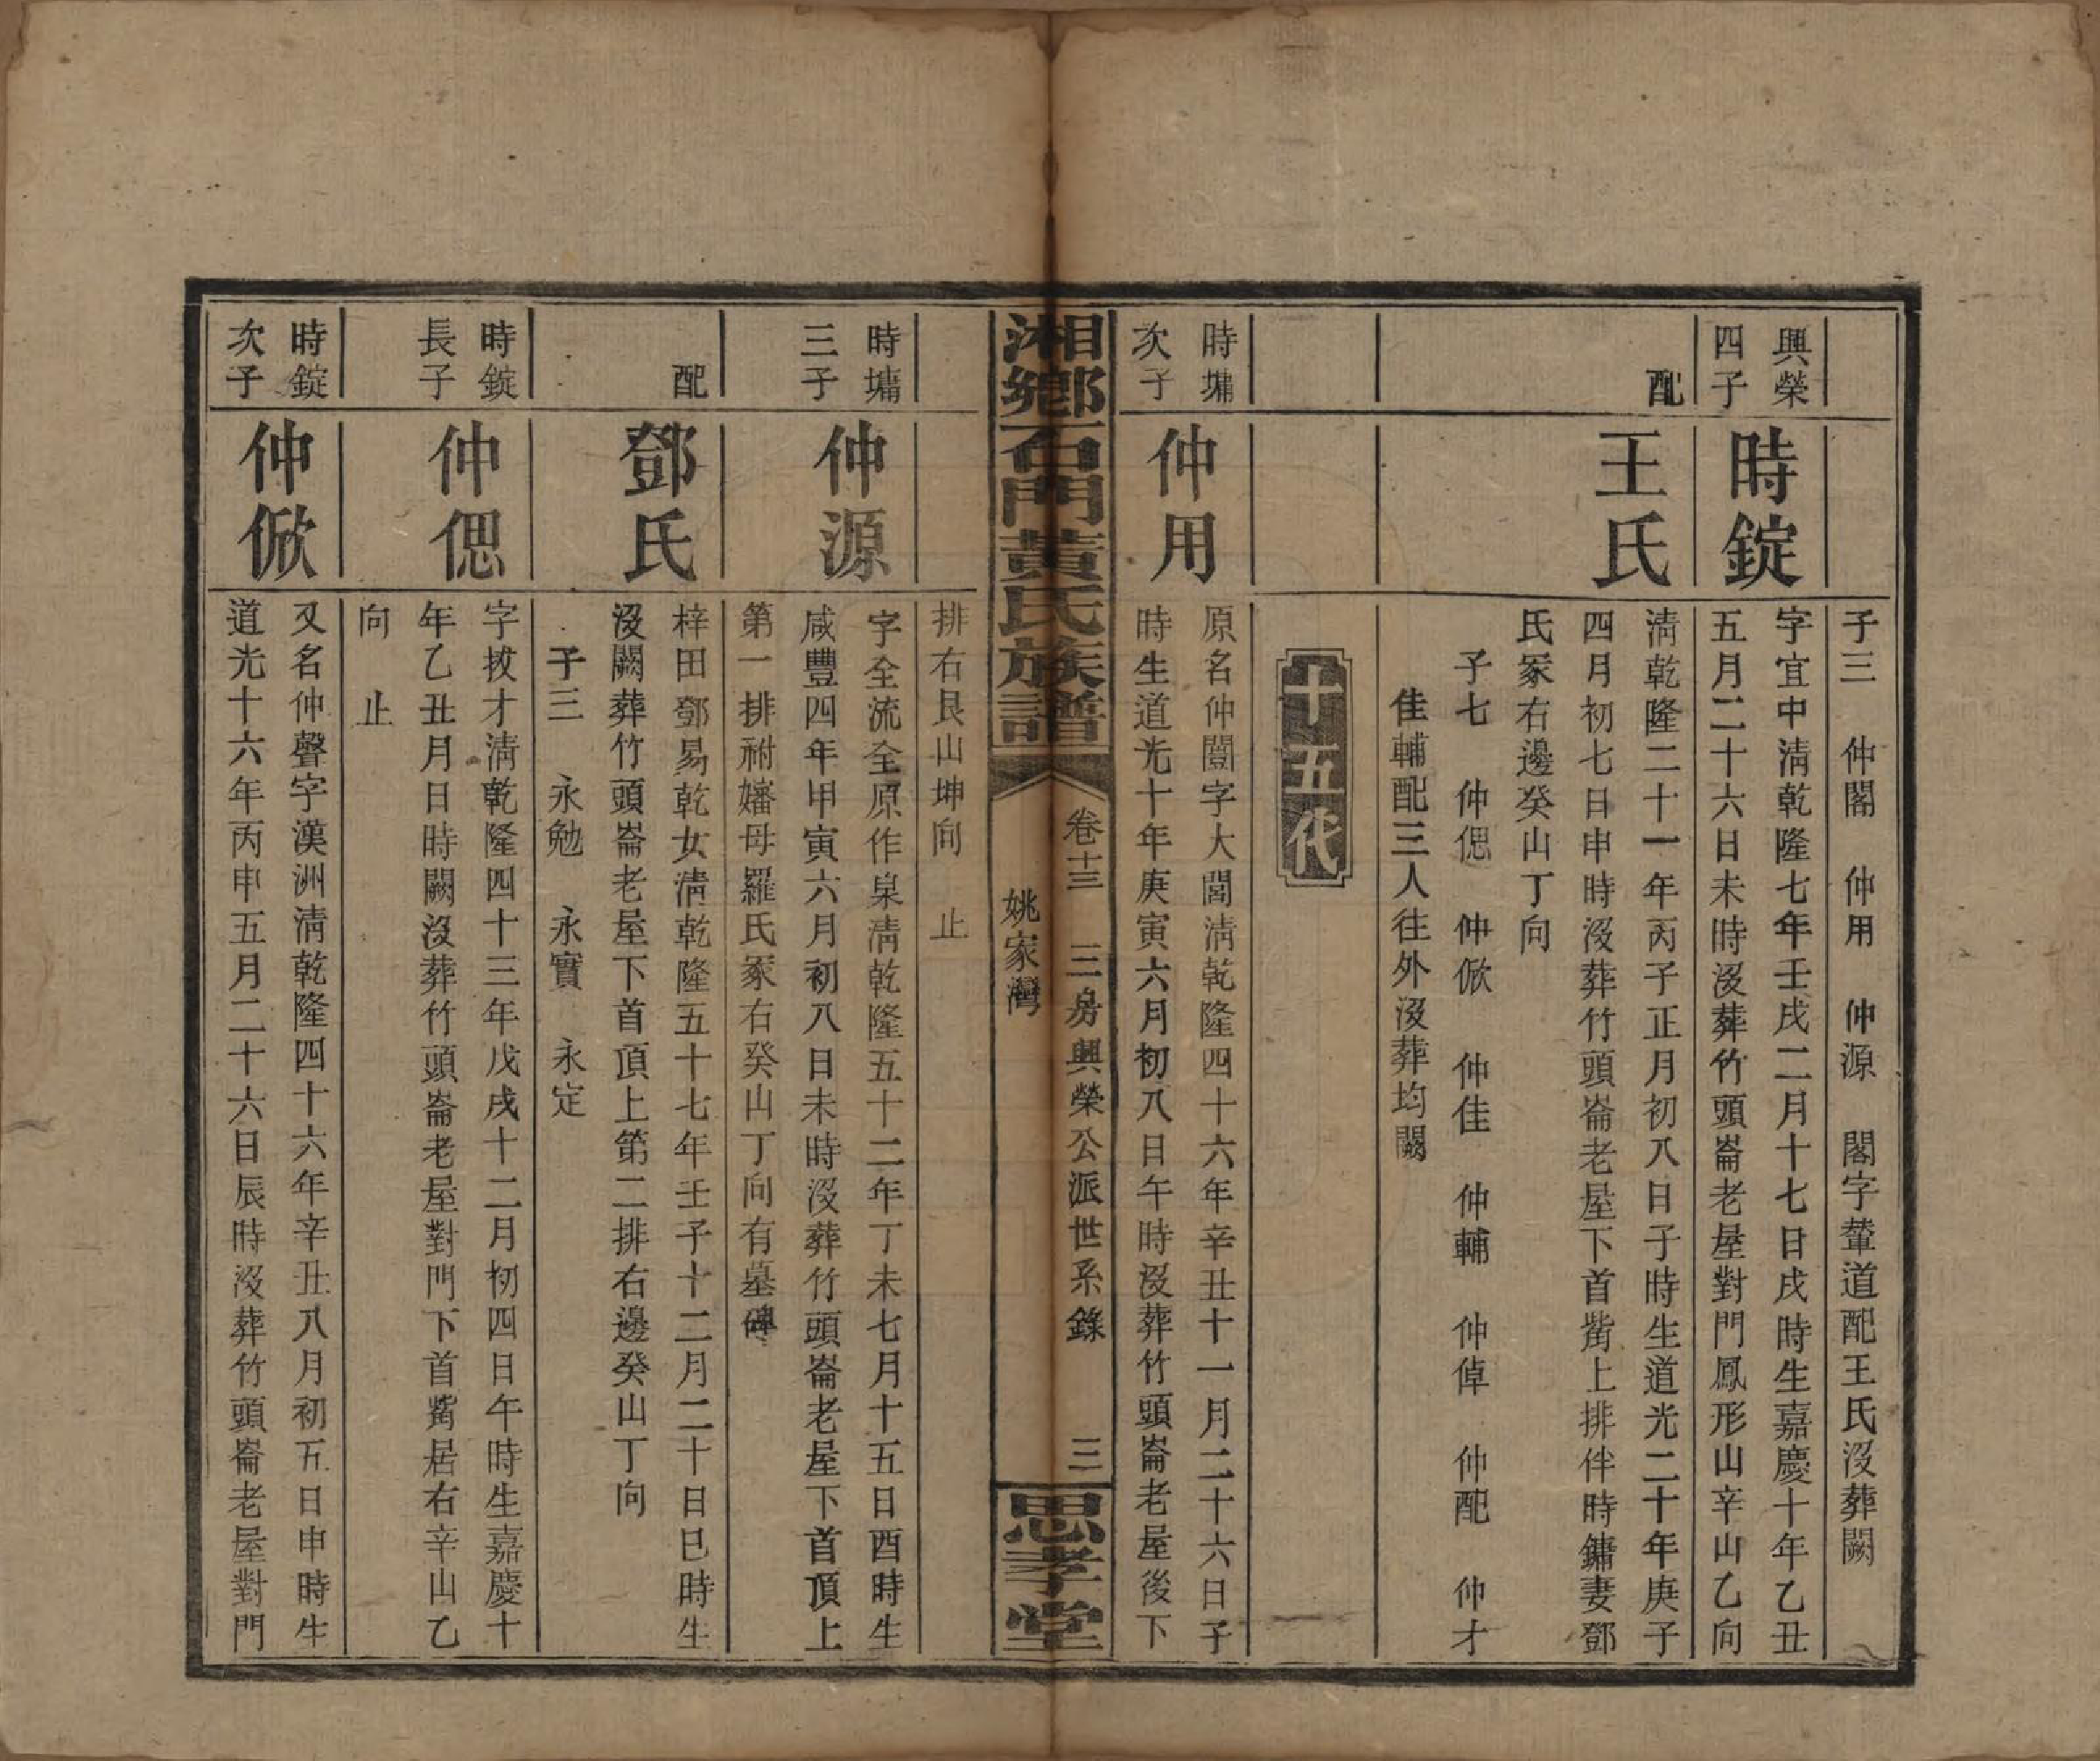 子三 仲閣 仲用 仲源 閣字輦道配王氏沒葬闕
興榮
四子
時錠
字宜中淸乾隆七年壬戌二月十七日戌時生嘉慶十年乙丑
五月二十六日未時沒葬竹頭崙老屋對門鳳形山辛山乙向
配
王氏
淸乾隆二十一年丙子正月初八日子時生道光二十年庚子
四月初七日申時沒葬竹頭崙老屋下首觜上排伴時鏞妻鄧
氏冢右邊癸山丁向
子七 仲偲 仲俽 仲佳 仲輔 仲倬 仲配 仲才
佳輔配三人往外沒葬均闕
十五代
時墉
次子
仲用
原名仲闓字大閭淸乾隆四十六年辛丑十一月二十六日子
時生道光十年庚寅六月初八日午時沒葬竹頭崙老屋後下
湘鄉石門黃氏族譜
卷十三 三房興榮公派世系錄 三
姚家灣
思孝堂
排右艮山坤向 止
時墉
三子
仲源
字全流全原作泉淸乾隆五十二年丁未七月十五日酉時生
咸豐四年甲寅六月初八日未時沒葬竹頭崙老屋下首頂上
第一排祔嬸母羅氏冢右癸山丁向有墓碑
配
鄧氏
梓田鄧易乾女淸乾隆五十七年壬子十二月二十日巳時生
沒闕葬竹頭崙老屋下首頂上第二排右邊癸山丁向
子三 永勉 永實 永定
時錠
長子
仲偲
字拔才淸乾隆四十三年戊戌十二月初四日午時生嘉慶十
年乙丑月日時闕沒葬竹頭崙老屋對門下首觜居右辛山乙
向 止
時錠
次子
仲俽
又名仲聲字漢洲淸乾隆四十六年辛丑八月初五日申時生
道光十六年丙申五月二十六日辰時沒葬竹頭崙老屋對門